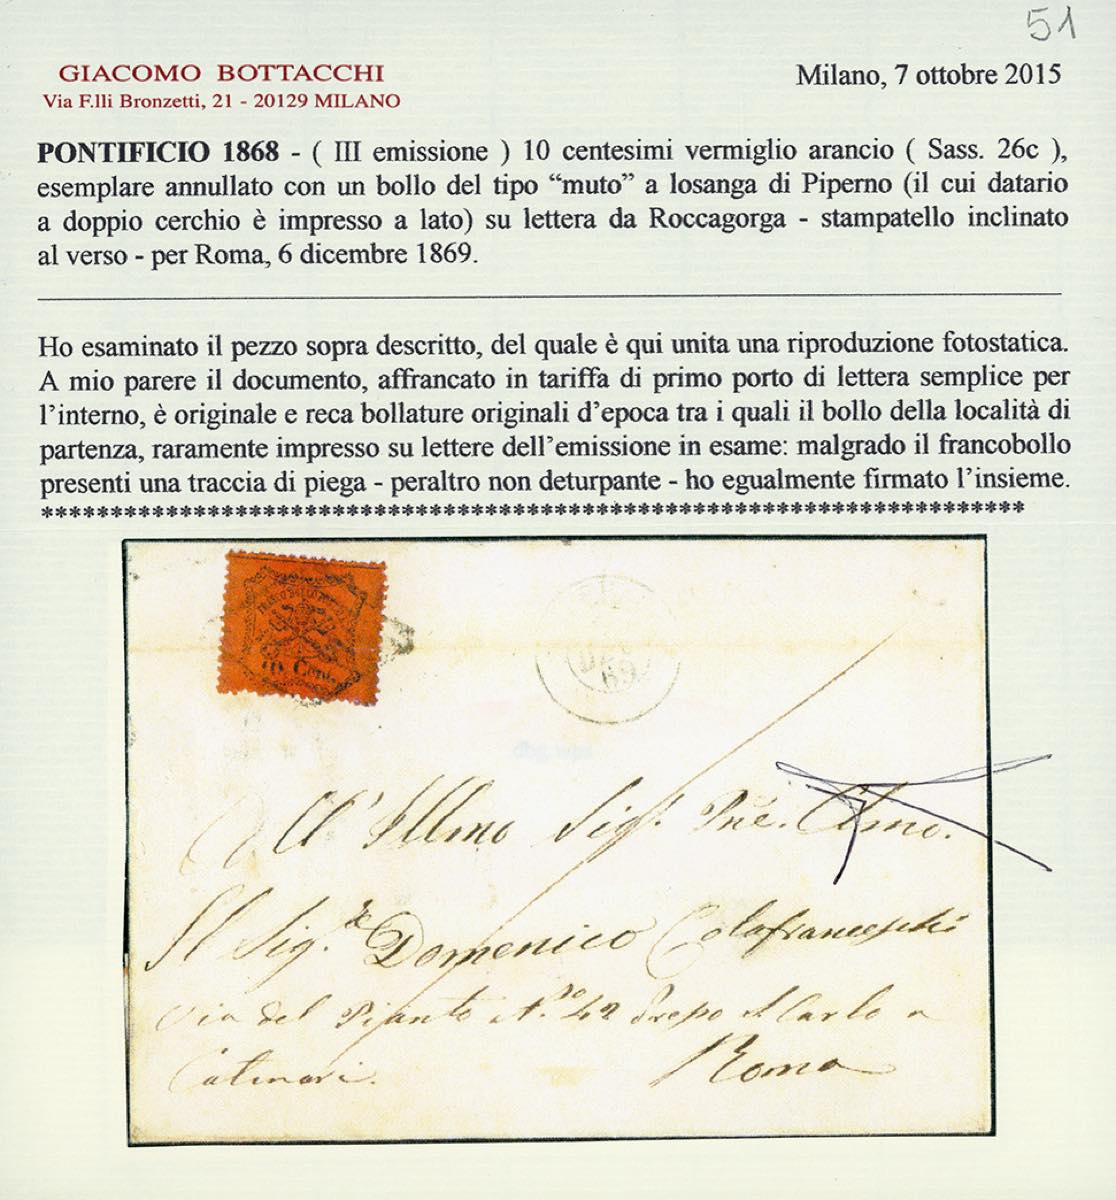 51
GIACOMO BOTTACCHI
Via F.lli Bronzetti, 21 - 20129 MILANO
Milano, 7 ottobre 2015
PONTIFICIO 1868 - ( III emissione ) 10 centesimi vermiglio arancio ( Sass. 26c ),
esemplare annullato con un bollo del tipo “muto” a losanga di Piperno (il cui datario
a doppio cerchio è impresso a lato) su lettera da Roccagorga - stampatello inclinato
al verso - per Roma, 6 dicembre 1869.
Ho esaminato il pezzo sopra descritto, del quale è qui unita una riproduzione fotostatica.
A mio parere il documento, affrancato in tariffa di primo porto di lettera semplice per
l’interno, è originale e reca bollature originali d’epoca tra i quali il bollo della località di
partenza, raramente impresso su lettere dell’emissione in esame: malgrado il francobollo
presenti una traccia di piega - peraltro non deturpante - ho egualmente firmato l’insieme.
**************************************************************************
10 Cent.
69
All' Illmo Sig.r Pne.
Il Sig.r Domenico Colafranceschi
Via del Pianto N.o 42 S Carlo a
Catinari.
Roma